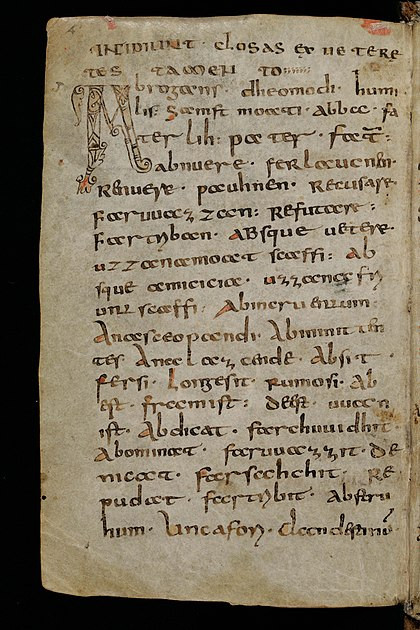 INCIPIUNT · closas ex uetere
tes tamen to
Abrogans · dheomodi · humi
lis · samft moati · Abba · fa
ter lih : pater · fater
abnuere · ferlaucnen ·
Renuere · pauhnen · Recusare
Faruuazzan : Refutare :
Fartriban · ABsque uetere ·
uzzana moat scaffi : Ab
sque amicicia · uzzana friu
scaffi ·
Anasceopandi ·
tes Anelazende · Absit ·
fersi · Longesit · rumosi · Ab
est · framist : deest · uuan
ist · Abdicat · farchuuidhit ·
Abominat · faruuazzit · De
negat · farsehchit · Re
pudiat · fartribit · Abstru
hum · Uncafori · Clandestinu